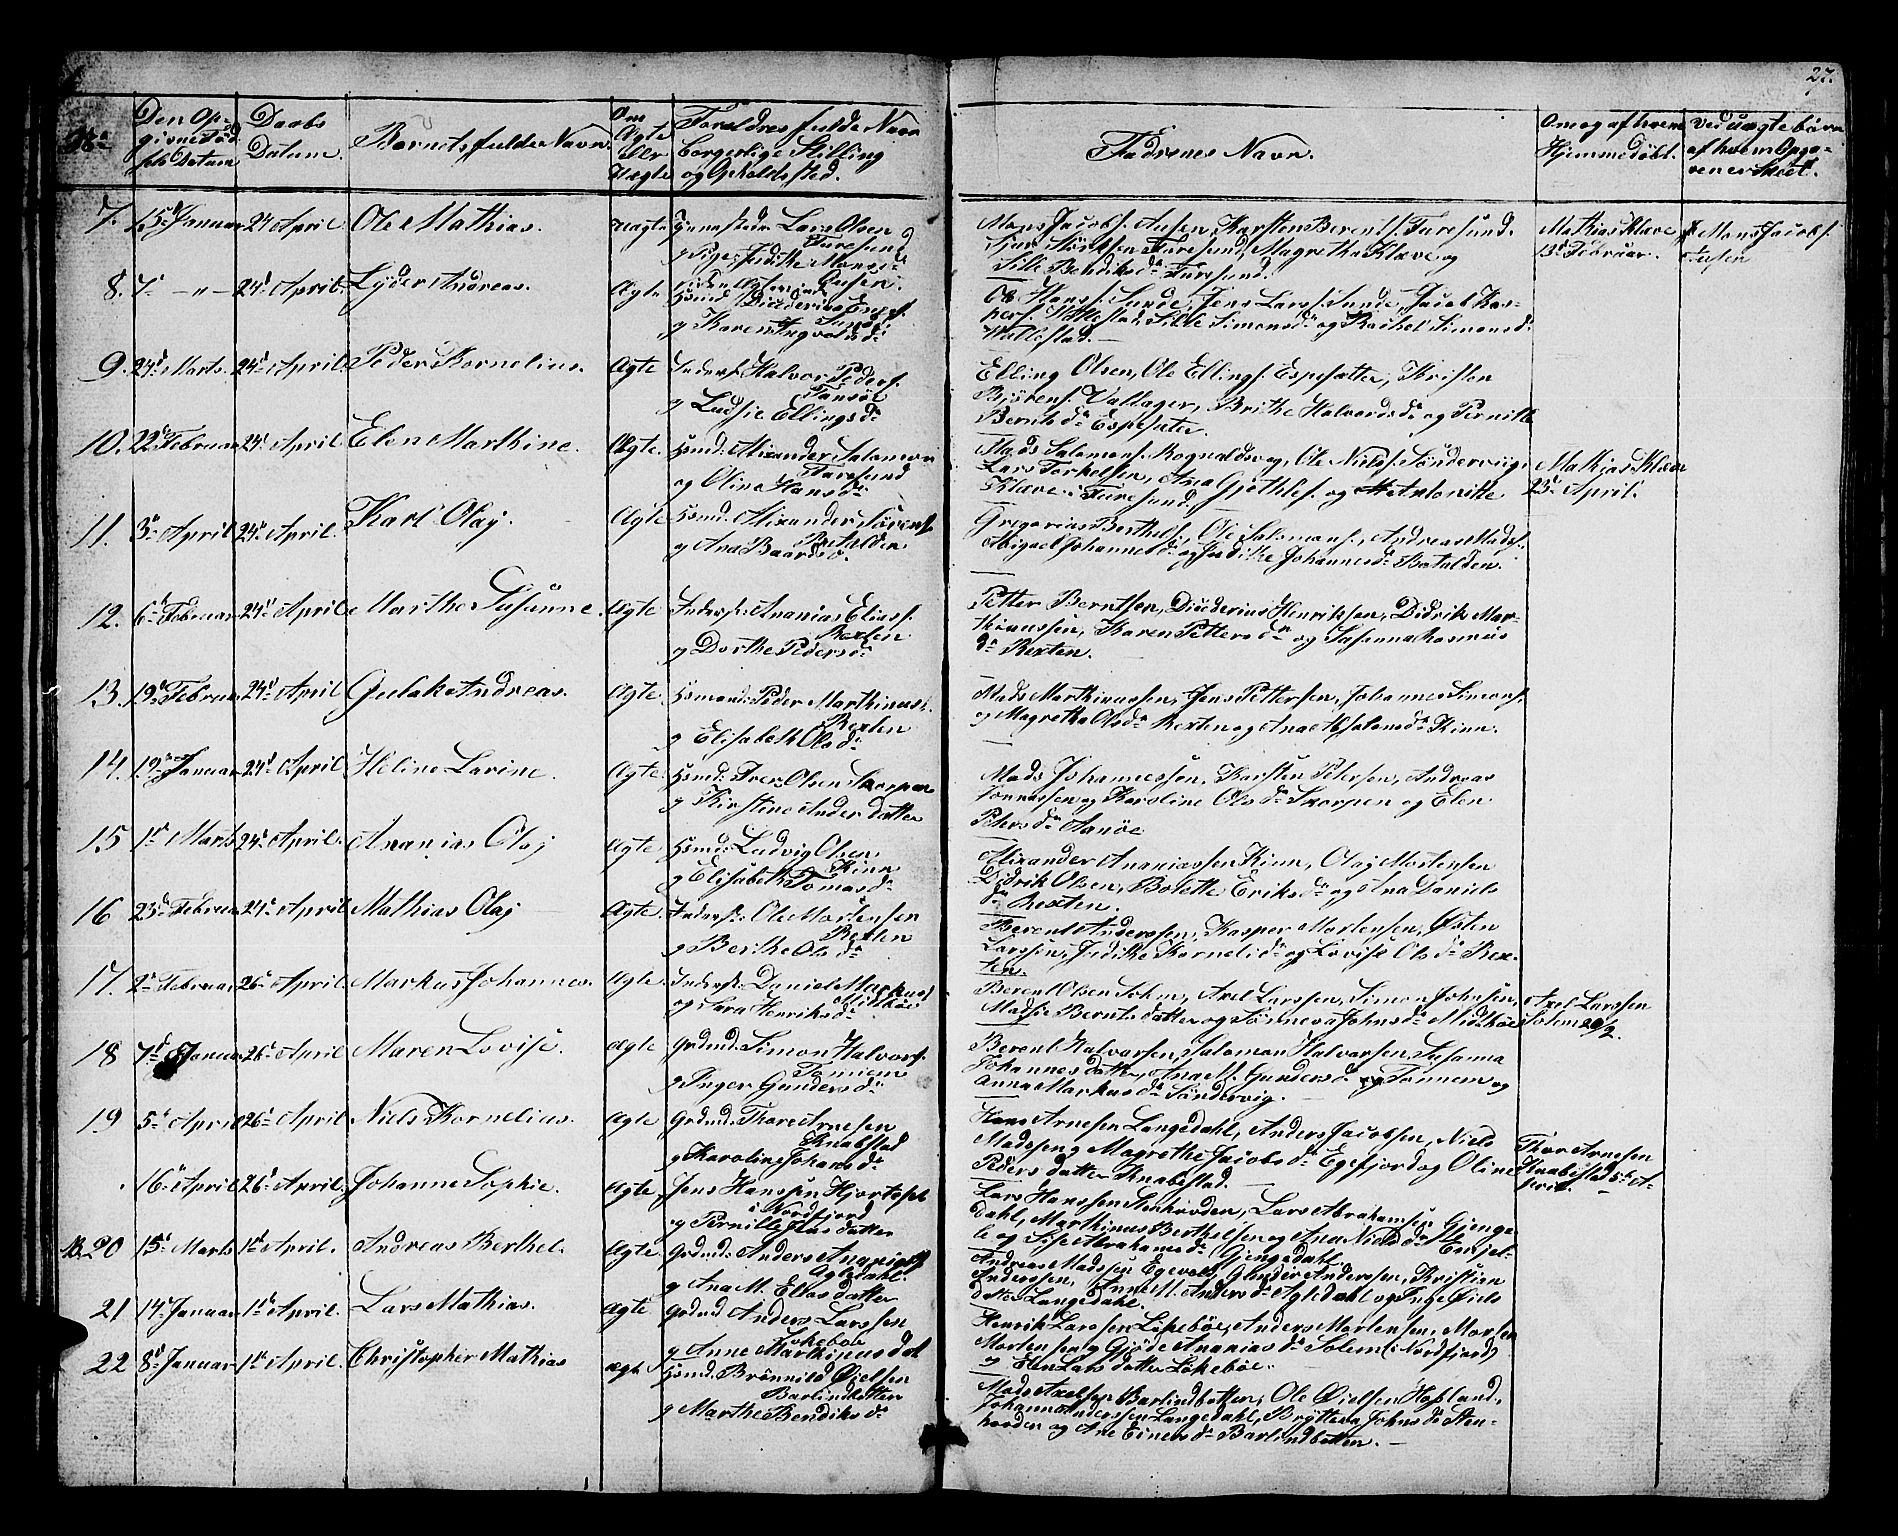 27.
No
Den Op-
givne Fød-
sels Datum
Daabs
Datum.
Barnets fulde Navn
Om
Ægte
eller
Uægte
Forældres fulde Navn
borgerlige Stilling
og Opholdssted.
Fadrenes Navn.
Om og af hvem
Hjemmedøbt.
Ved uægte børn
af hvem Opga-
ven er Skeet.
7. 15d Januar 24 April. Ole Mathias. uægte Lars Olsen
Furesund
og Pige Judithe Monsdr
Mons Jacobs. Ausen, Karsten Berents. Furesund.
Sjur Størksen Furesund, Magretha Klæve og
Sille Bendiksdr Furesund.
Mathias Klæve
13d Februar.
Mons Jacobs.
Ausen
8. 7d — " — 24d April. Lyder Andreas. Ægte
og Karen Ingvalsdr
Ole Hanss. Sunde, Jens Larss. Sunde, Jacob Kas-
pers. Vallestad, Sille Simonsdr og Rachel Simonsdr
Vallestad.
9. 24d Marts. 24d April Peder Kornelius. Ægte Inders. Halvor Peders.
Tansøe
og Ludsie Ellingsdr
Elling Olsen, Ole Ellings. Espesætter, Kristen
Björens. Vallager, Brithe Halvordsdr og Pernille
Berntsdr Espesæter.
10. 22d Februar 24d April Elen Marthine. Ægte. Hsmd. Alexander Salomon
Furesund
og Oline Hansdr
Mads Salomons. Rognaldsvog, Ole Niels. Sønderviig,
Lars Torkelsen, Ana Gjøthlef. og Antonithe
Klæve i Furesund.
Mathias Klæve
23d April.
11. 3d April 24d April. Karl Olaj. Ægte Hsmd. Alexander Sørens.
Batalden
og Ana Baardsdr.
Gregorius Berthels., Ole Salomons., Andreas Mads.,
Abigael Johannesdr og Judithe Johannesdr Batalden.
12. 6d Februar 24d April Marthe Susanne. Ægte Inders. Ananias Eliass.
Rexten
og Dorthe Pedersdr
Petter Berntsen, Diuderius Henriksen, Didrik Mar-
thinussen, Karen Pettersdr og Susanna Rasmus
dr Rexten.
13. 19d Februar 24d April Gulak Andreas. Ægte Hsmand Peder Marthinus.
Rexten
og Elisabeth Olsdr
Mads Marthinussen, Jens Pettersen, Johannes Simons.
og Magretha Olsdr Rexten og Ana Absalonsdr Kinn.
14. 19d Januar 24d April Heline Lavine. Ægte. Hsmd. Iver Olsen Skorpen
og Kirstine Andersdatter
Mads Johannessen, Karsten Petersen, Andreas
Jonnassen og Karoline Olsdr Skorpen og Elen
Petersdr Aanøe
15 1d Marts 24d April. Ananias Olaj Ægte Hsmd. Ludvig Olsen
Kinn
og Elisabeth Tomasdr
Alexander Ananiassen Kinn, Olaj Mortensen
Didrik Olsen, Bolette Eriksdr og Ana Daniels
dr Rexten.
16 23d Februar 24d April Mathias Olaj Ægte Inders. Ole Mortensen
Rexten
og Berthe Olsdr
Berent Anderssen, Kasper Mortensen, Østen
Larssen, Judithe Kornelidr og Lovise Olsdr Rex-
ten.
17. 2d Februar 26d April Markus Johannes. Ægte Inders. Daniel Markus
Midtbøe
og Sara Henriksdr
Berent Olsen Solem, Axel Larssen, Simon Johnsen,
Madsie Berntsdatter og Sønneva Johnsdr Midtbøe
Axel Larssen
Solem 20/2.
18 7d Januar 26d April Maren Lovise. ægte Grdmd. Simon Halvors.
Tonnem
og Inger Gundersdr
Berent Halvorsen, Salomon Halvorsen, Susanna
Johannesdatter, Ana M. Gundersdr Tonnem og
Anna Markusdr Söndervig.
19 5d April 26d April Niels Kornelius. Ægte Grdmd. Thore Arnesen
Knabestad
og Karoline Johansdr
Hans Arnesen Langedahl, Anders Jacobsen, Niels
Madsen og Magrethe Jacobsdr Egefjord og Oline
Pedersdatter Knabestad.
Thor Arnesen
Knabestad 5te A-
pril.
16d April 26d April Johanne Sophie. Ægte Jens Hanssen Hjortesæt
i Nordfjord
og Pernille datter
Lars Hanssen Stenhovden, Lars Abrahamsen Gjenge
dahl, Marthinus Berthelsen og Ana Nielsdr
og Sofie Abrahamsdr Gjengedahl.
20 15d Marts 1d April. Andreas Berthel. Ægte Grdmd. Anders Ananiass.
Agledahl
og Ana M. Eliasdatter
Andreas Madssen Egevold, Gunder Anderssen, Kristian
Anderssen, Anne M. Andersdr Agledahl og Inge Øiels
datter Langedahl.
21 14d Januar 1d April. Lars Mathias. Ægte Grdmd Anders Larssen
Løkebøe
og Anne Marthinusdat
Henrik Larssen Løkebøe, Anders Mortensen, Morten
Mortensen og Gjøde Ananiasdr Solem (i Nordfjord)
og Elen Larsdatter Løkebøe.
22 8d Januar 1d April. Christopher Mathias ægte Hsmd. Brönnild Øielsen
Barlindbotten
og Marthe Bendiksdr
Mads Axelsen Barlindbotten, Ole Øielsen Hovland,
Johannes Anderssen Langedahl, Brytteva Johnsdr Sten-
hovden og Ane Einersdr Barlindbotten.